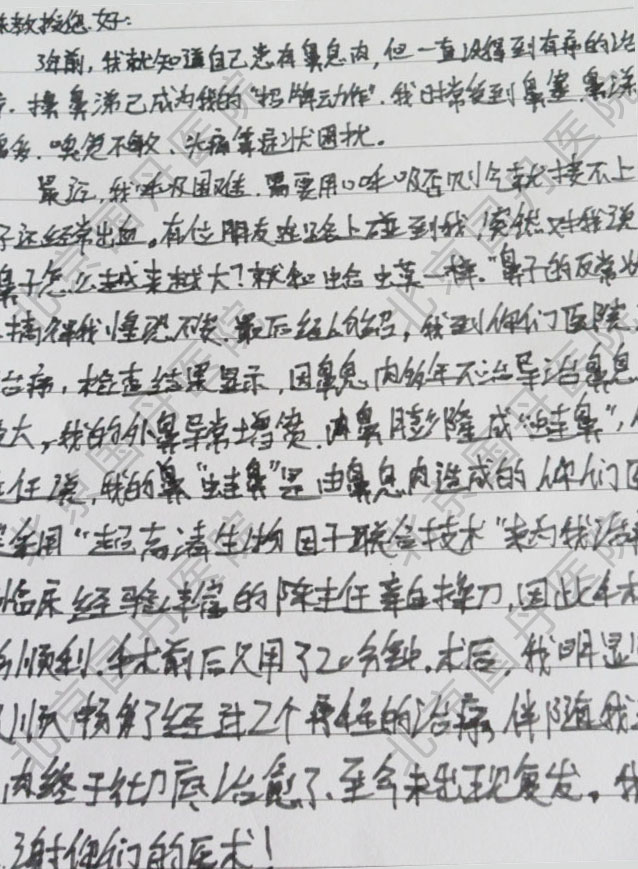 教授您好:
3年前,我就知道自己患有鼻息肉,但一直没得到有病的治
擤鼻涕已成为我的"招牌动作",我时常受到鼻塞,鼻涕
多,嗅觉不敏、头痛等症状困扰。
最近,我呼吸困难,需要用口呼吸否则令就接不上
子还经常出血。有位朋友路上碰到我,突然对我说
鼻子怎么越来越大?就和蛤蟆一样。"鼻子的反常
搞得我惶恐不安,最后经人介绍,我到你们医院
治病,检查结果显示,因鼻息肉多年不治导治鼻息
大,我的外鼻异常增宽,两鼻膨隆成"蛙鼻",
任说,我的鼻"蛙鼻"是由鼻息肉造成的你们医
采用"超高清生物因子联合技术"来为我治
临床经验丰富的陈主任亲自操刀,因此手术
顺利,手术前后只用了20分钟,术后,我明显
顺畅多了经过2个疗程的治疗,伴随我
肉终于彻底治愈了、至今未出现复发。我
谢你们的医术!
北京国丹医院
北京国丹医院
北京国丹医院
北京国丹医院
北京国丹医院
北京国丹医院